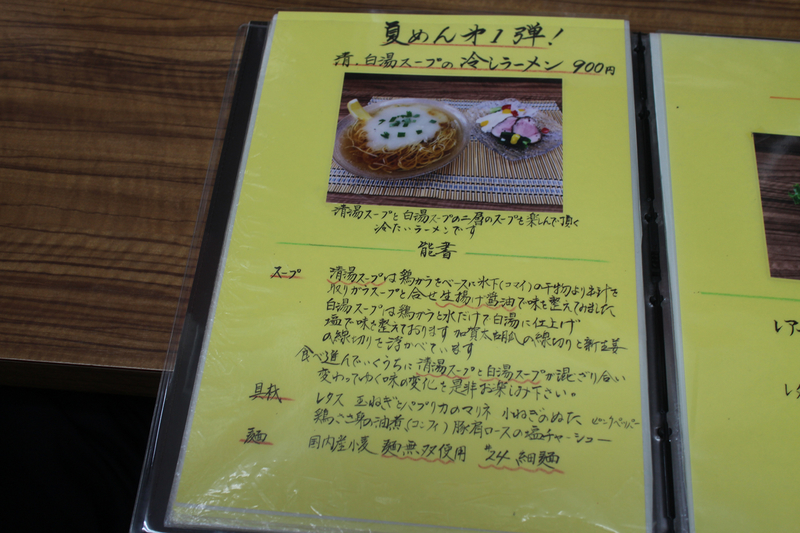 夏めん第1弾!
清・白湯スープの冷しラーメン 900円
清湯スープと白湯スープの二層のスープを楽しんで頂く
冷たいラーメンです
能書
スープ 清湯スープは鶏がらをベースに氷下(コマイ)の干物より出汁を
取りガラスープと合せ生揚げ醤油で味を整えてみました
白湯スープは鶏がらと水だけで白湯に仕上げ
塩で味を整えております 加賀太胡瓜の線切りと新生姜
の線切りを浮かべています
食べ進んでいくうちに清湯スープと白湯スープが混ざり合い
変わってゆく味の変化を是非お楽しみ下さい。
具材 レタス 玉ねぎとパプリカのマリネ 小ねぎのぬた ピンクペッパー
鶏ささ身の油煮(コンフィ) 豚肩ロースの塩チャーシュー
麺 国内産小麦 麺無多使用 #24 細麺
レア
レタ